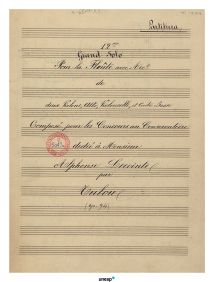 Partitura
12me
Grand Solo
Pour la Flûte avec Acct
de
deux Violons, Alto, Violoncelle, et Contre Basse
Composé pour les Concours au Conservatoire
dédié à Monsieur
Alphonse Leceinte
par
Tulou
(Op. 94)
unesp